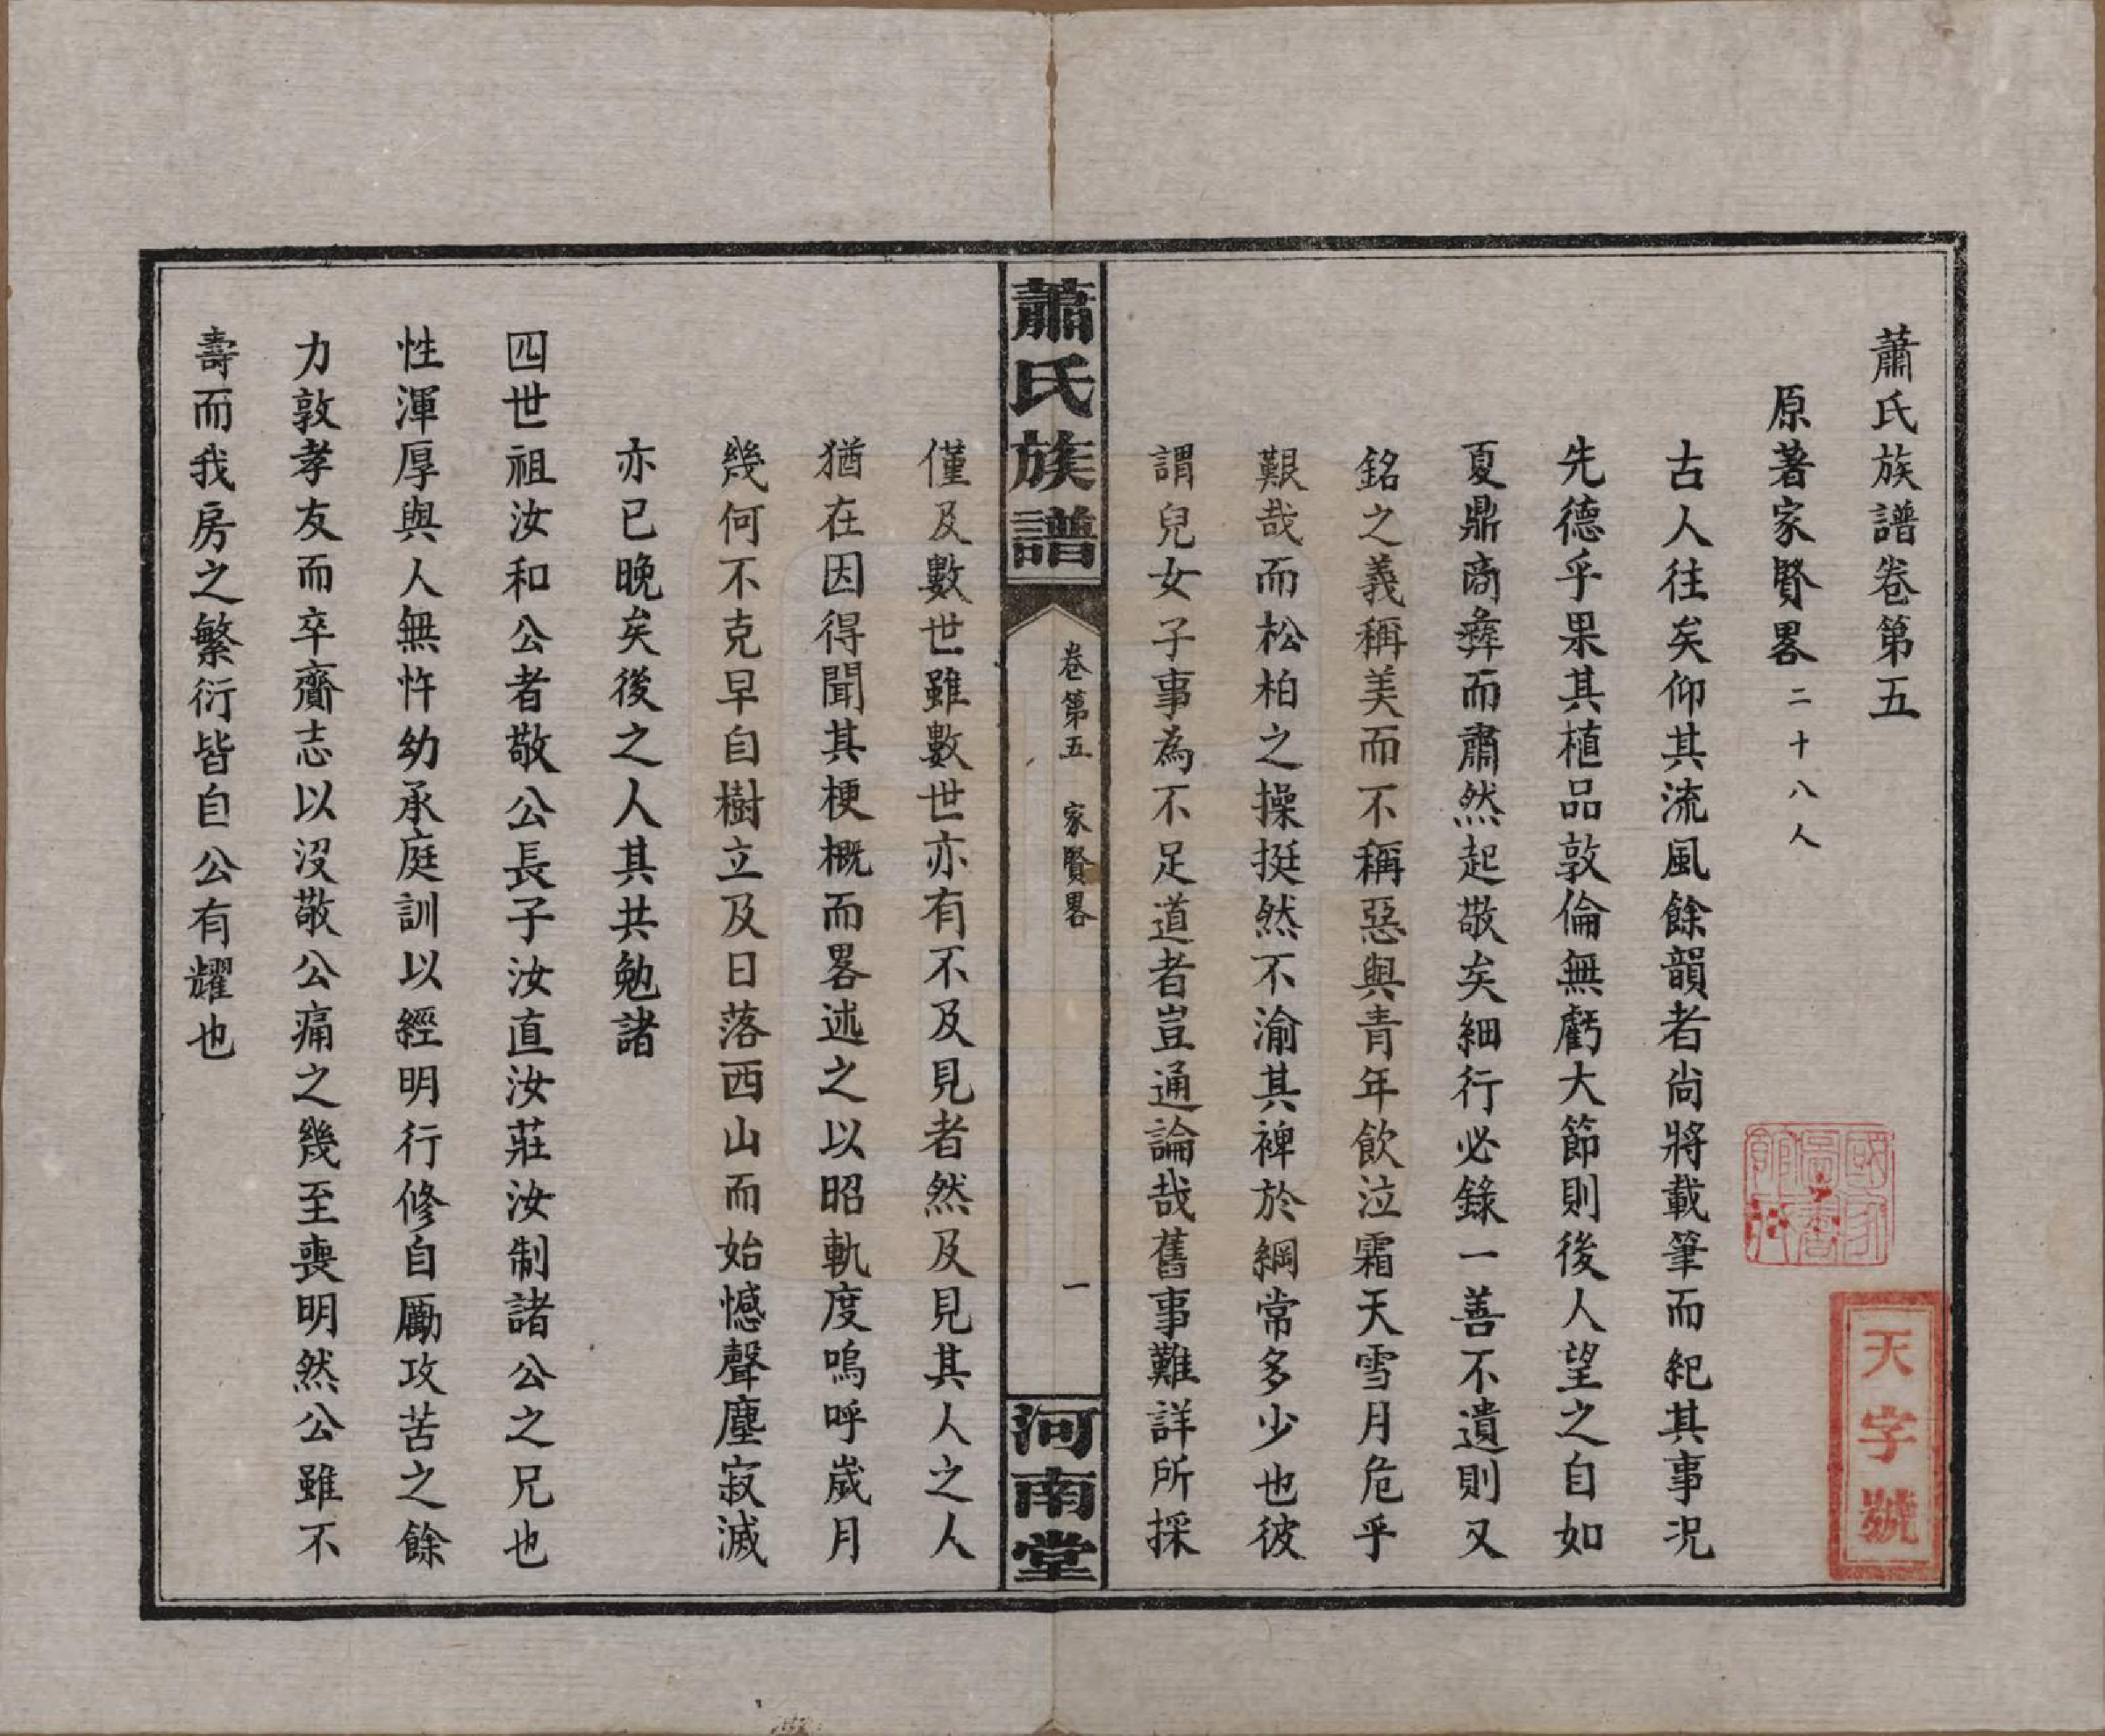 蕭氏族譜卷第五
原著家賢畧二十八人
古人往矣仰其流風餘韻者尚將載筆而紀其事况
先德乎果其植品敦倫無虧大節則後人望之自如
夏鼎商彝而肅然起敬矣細行必錄一善不遺則又
銘之義稱美而不稱惡與青年飲泣霜天雪月危乎
艱哉而松柏之操挺然不渝其裨於綱常多少也彼
謂兒女子事為不足道者豈通論哉舊事難詳所採
蕭氏族譜
卷第五
家賢畧
一
河南堂
僅及數世雖數世亦有不及見者然及見其人之人
猶在因得聞其梗概而畧述之以昭軌度嗚呼歲月
幾何不克早自樹立及日落西山而始憾聲塵寂滅
亦已晚矣後之人其共勉諸
四世祖汝和公者敬公長子汝直汝莊汝制諸公之兄也
性渾厚與人無忤幼承庭訓以經明行修自勵攻苦之餘
力敦孝友而卒齎志以沒敬公痛之幾至喪明然公雖不
壽而我房之繁衍皆自公有耀也
國家圖書館藏
天字號